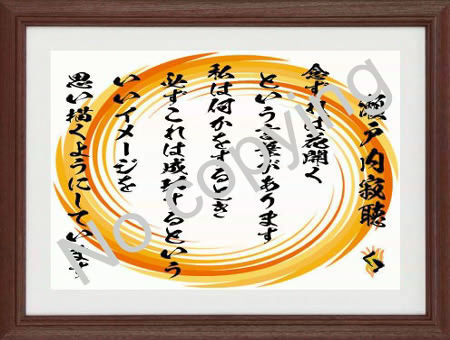 瀬戸内寂聴
念ずれば花開く
という言葉があります
私は何かをするとき
必ずこれは成功するという
いいイメージを
思い描くようにしています
No copying